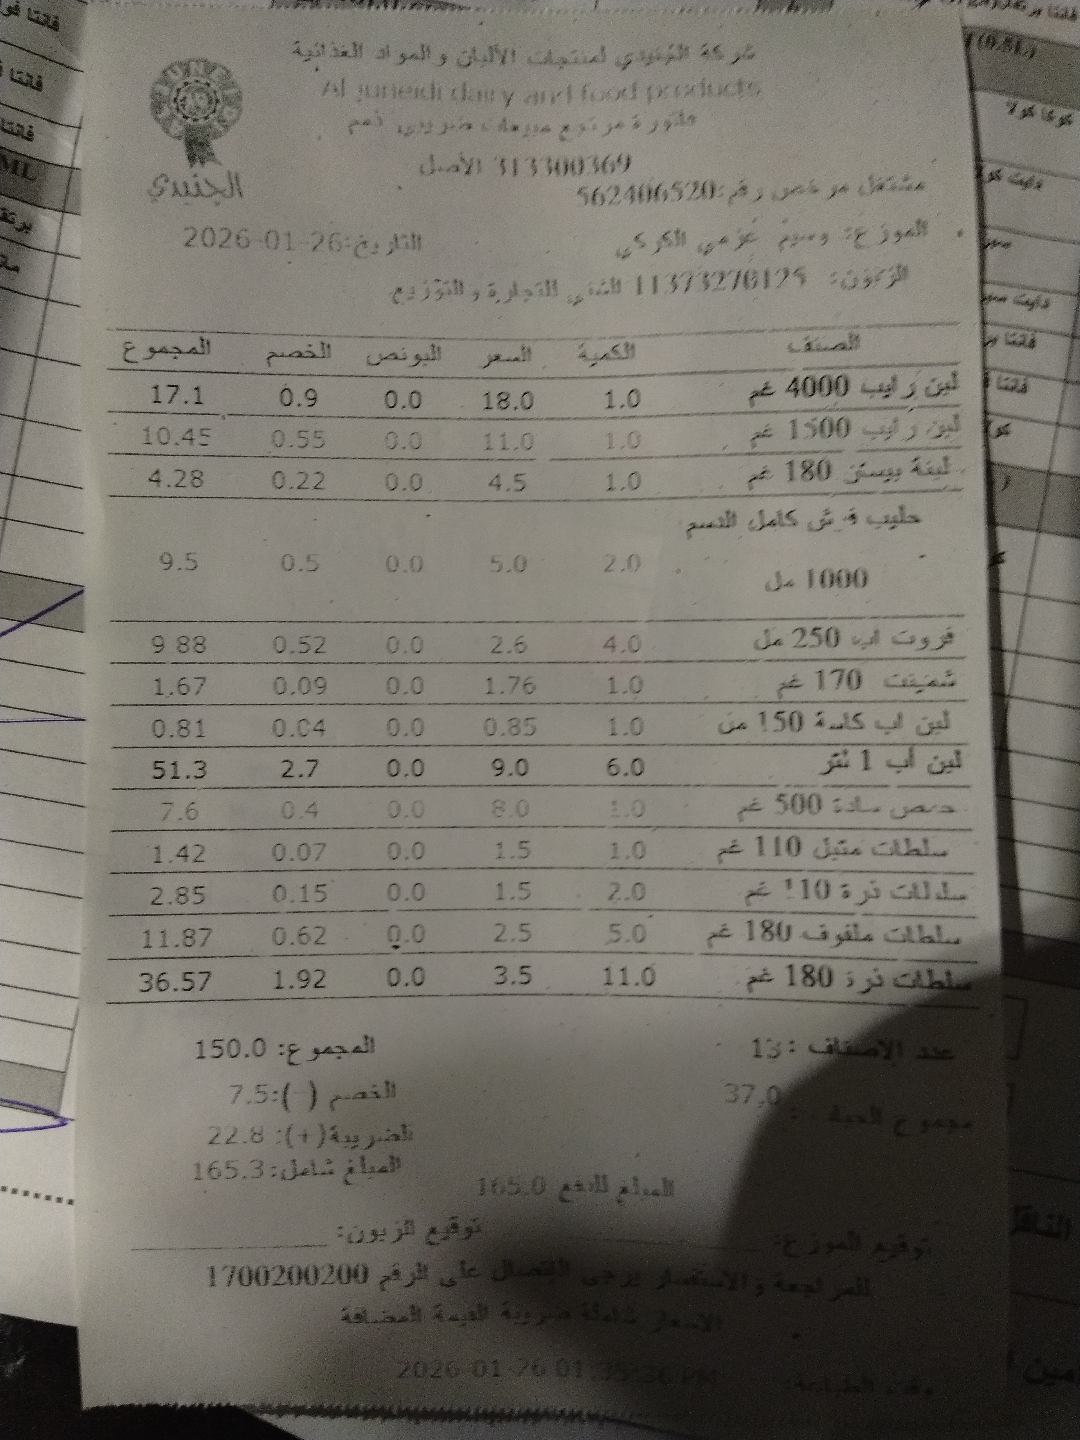 شركة الجنيدي لمنتجات الألبان والمواد الغذائية
Al juneidi dairy and food products
فاتورة مرتجع مبيعات ضريبي ذمم
313300369 الأصل
الجنيدي
مشتغل مرخص رقم:562406520
الموزع: وسيم عزمي الكركي التاريخ:2026-01-26
الزبون: 11373270125 للتجارة والتوزيع
الصنف الكمية السعر البونص الخصم المجموع
لبن رايب 4000 غم 1.0 18.0 0.0 0.9 17.1
لبن رايب 1500 غم 1.0 11.0 0.0 0.55 10.45
لبنة بيستن 180 غم 1.0 4.5 0.0 0.22 4.28
حليب فرش كامل الدسم
1000 مل 2.0 5.0 0.0 0.5 9.5
فروت اب 250 مل 4.0 2.6 0.0 0.52 9.88
شمينت 170 غم 1.0 1.76 0.0 0.09 1.67
لبن اب كاسة 150 مل 1.0 0.85 0.0 0.04 0.81
لبن أب 1 لتر 6.0 9.0 0.0 2.7 51.3
حمص سادة 500 غم 1.0 8.0 0.0 0.4 7.6
سلطات متبل 110 غم 1.0 1.5 0.0 0.07 1.42
سلطات ذرة 110 غم 2.0 1.5 0.0 0.15 2.85
سلطات ملفوف 180 غم 5.0 2.5 0.0 0.62 11.87
سلطات ذرة 180 غم 11.0 3.5 0.0 1.92 36.57
عدد الاصناف: 13 المجموع: 150.0
مجموع 37.0 الخصم (-):7.5
الضريبة(+): 22.8
المبلغ شامل:165.3
المبلغ للدفع 165.0
توقيع الموزع: توقيع الزبون:
للمراجعة والاستفسار يرجى الاتصال على الرقم 1700200200
الاسعار شاملة ضريبة القيمة المضافة
وقت الطباعة: 2026-01-26 01:35:36 PM